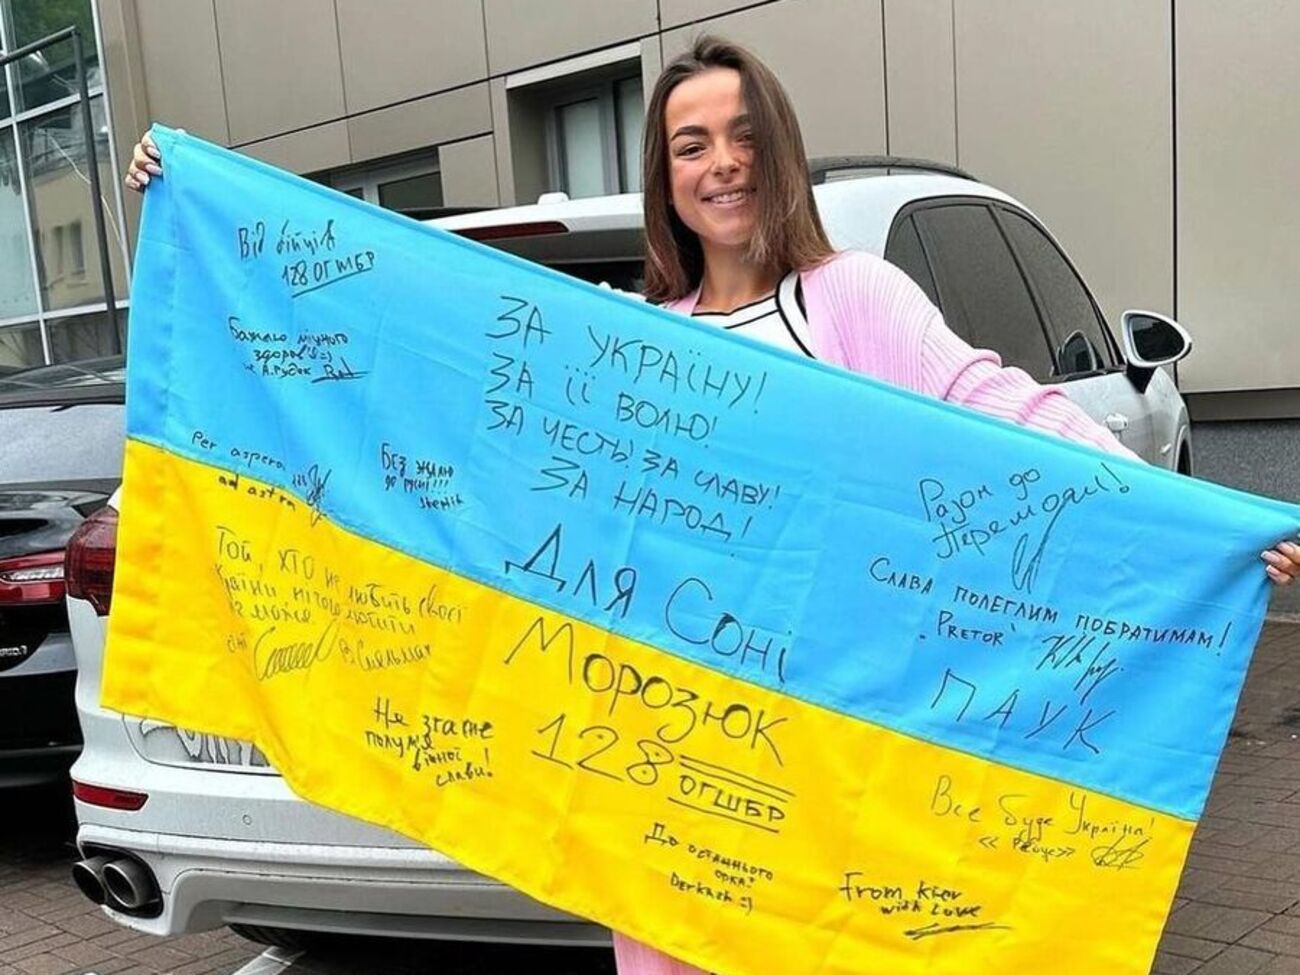 Від бійців
128 ОГШБР
Бажаю міцного
здоров'я =)
А. Рудик
Per aspera
ad astra
БЕЗ ЖАЛЮ
до русні!!!
ЗА УКРАЇНУ!
ЗА ЇЇ ВОЛЮ!
ЗА ЧЕСТЬ! ЗА СЛАВУ!
ЗА НАРОД!
ДЛЯ СОНІ
МОРОЗЮК
128 ОГШБР
Разом до
Перемоги!
СЛАВА ПОЛЕГЛИМ ПОБРАТИМАМ!
"PRETOR"
ПАУК
Той, хто не любить своєї
країни, нічого любити
не може
Не згасне
полум'я
вічної
слави!
До останнього
орка!
Derkach :)
Все буде Україна!
From Kiev
with Love